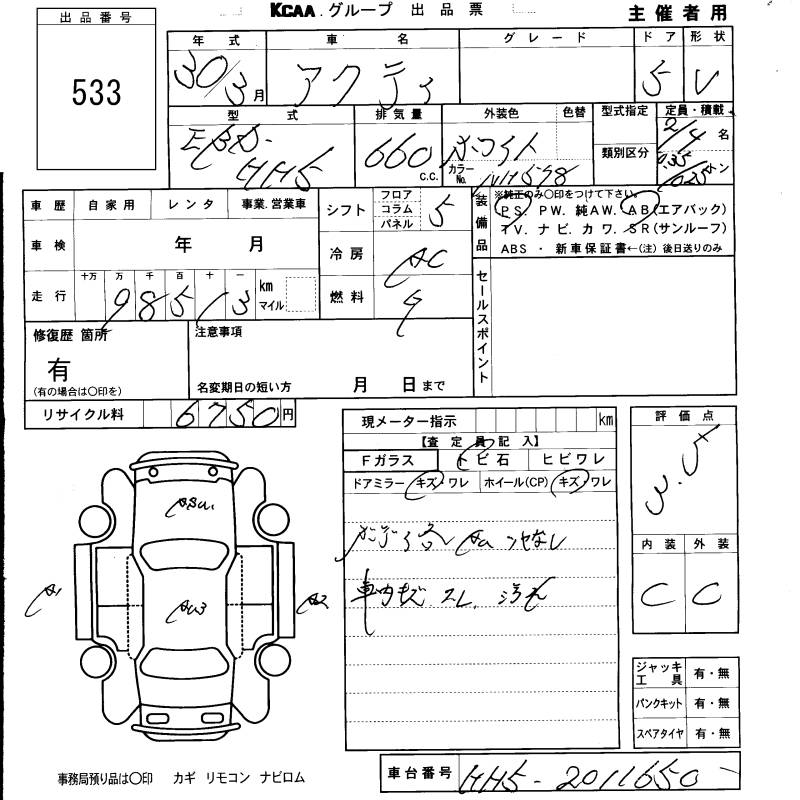 KCAA グループ 出品票
主催者用
出品番号
533
年式 車名 グレード ドア 形状
30/3月 アクティ 5 V
型式 排気量 外装色 色替 型式指定 定員・積載
EBD-HH5 660 C.C. ホワイト カラーNo. NH578 類別区分 2/4名 0.35/0.25トン
車歴 自家用 レンタ 事業.営業車
車検 年 月
走行 十万 万 千 百 十 一 km マイル
98513
シフト フロア コラム パネル 5
冷房 AC
燃料
装備品 ※純正のみ○印をつけて下さい。
PS. PW. 純AW. AB(エアバック)
TV. ナビ. カワ. SR(サンルーフ)
ABS ・ 新車保証書←(注) 後日送りのみ
セールスポイント
修復歴 箇所
有
(有の場合は○印を)
注意事項
名変期日の短い方 月 日まで
リサイクル料 6750円
現メーター指示 km
【査定員記入】
Fガラス トビ石 ヒビワレ
ドアミラー キズ・ワレ ホイール(CP) キズ・ワレ
車内キズ スレ 汚れ
評価点
3.5
内装 外装
C C
A1
A2
ジャッキ工具 有・無
パンクキット 有・無
スペアタイヤ 有・無
事務局預り品は○印 カギ リモコン ナビロム
車台番号 HH5-2011650